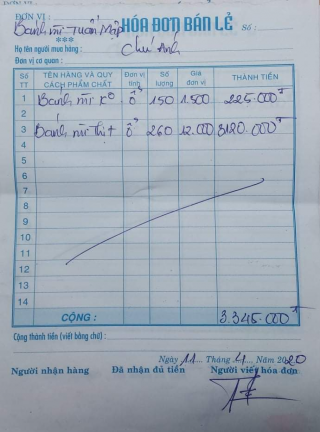 ĐƠN VỊ: Bánh mì Tuấn Mập
HÓA ĐƠN BÁN LẺ Số:
***
Họ tên người mua hàng: Chú Anh
Đơn vị cơ quan:
Số TT TÊN HÀNG VÀ QUY CÁCH PHẨM CHẤT Đơn vị tính Số lượng Giá đơn vị THÀNH TIỀN
1 Bánh mì Ko ổ 150 1.500 225.000đ
2
3 Bánh mì thịt ổ 260 12.000 3120.000đ
4
5
6
7
8
9
10
11
12
13
14
CỘNG: 3.345.000đ
Cộng thành tiền (viết bằng chữ):
Ngày 11 Tháng 4 Năm 2020
Người nhận hàng Đã nhận đủ tiền Người viết hóa đơn